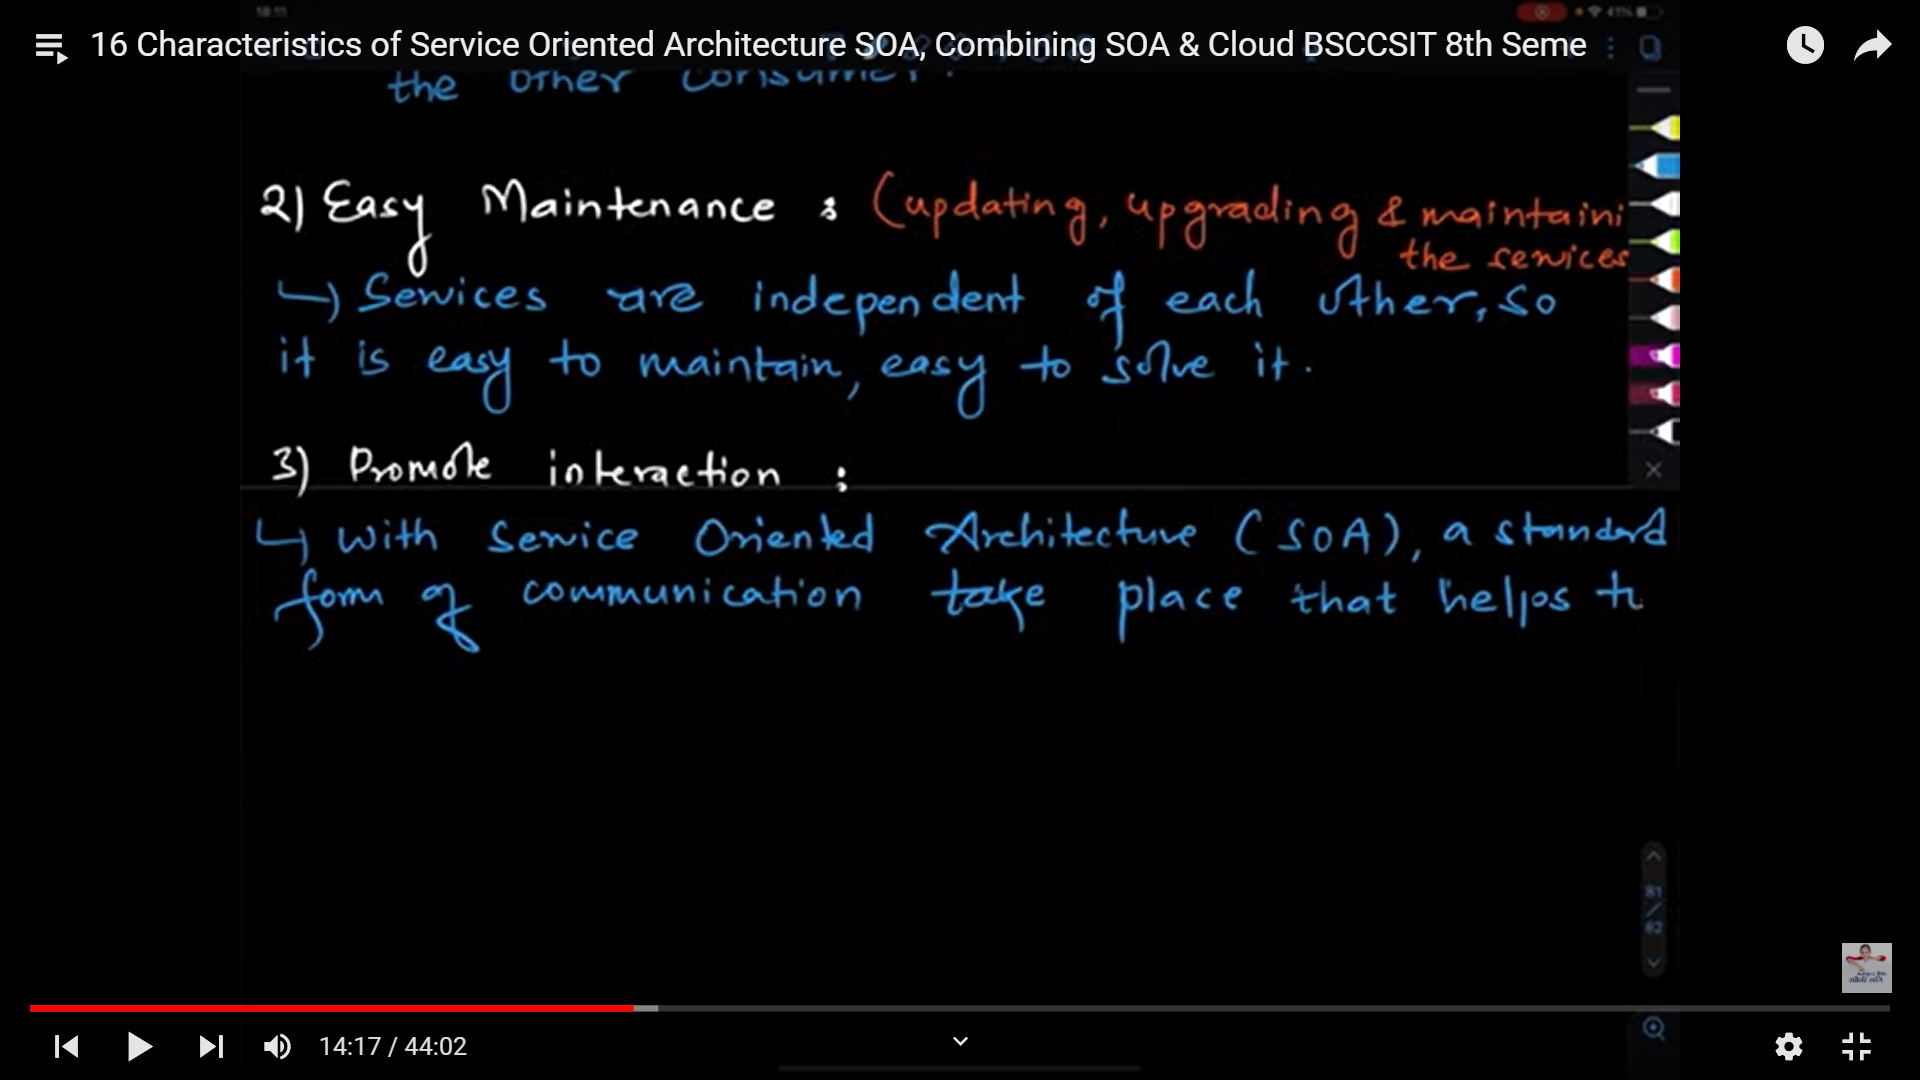 16 Characteristics of Service Oriented Architecture SOA, Combining SOA & Cloud BSCCSIT 8th Seme
the other consumer.
2) Easy Maintenance : (updating, upgrading & maintaini
the services
↳ Services are independent of each other, so
it is easy to maintain, easy to solve it.
3) Promote interaction :
↳ With Service Oriented Architecture (SOA), a standard
form of communication take place that helps t
81
/
82
14:17 / 44:02